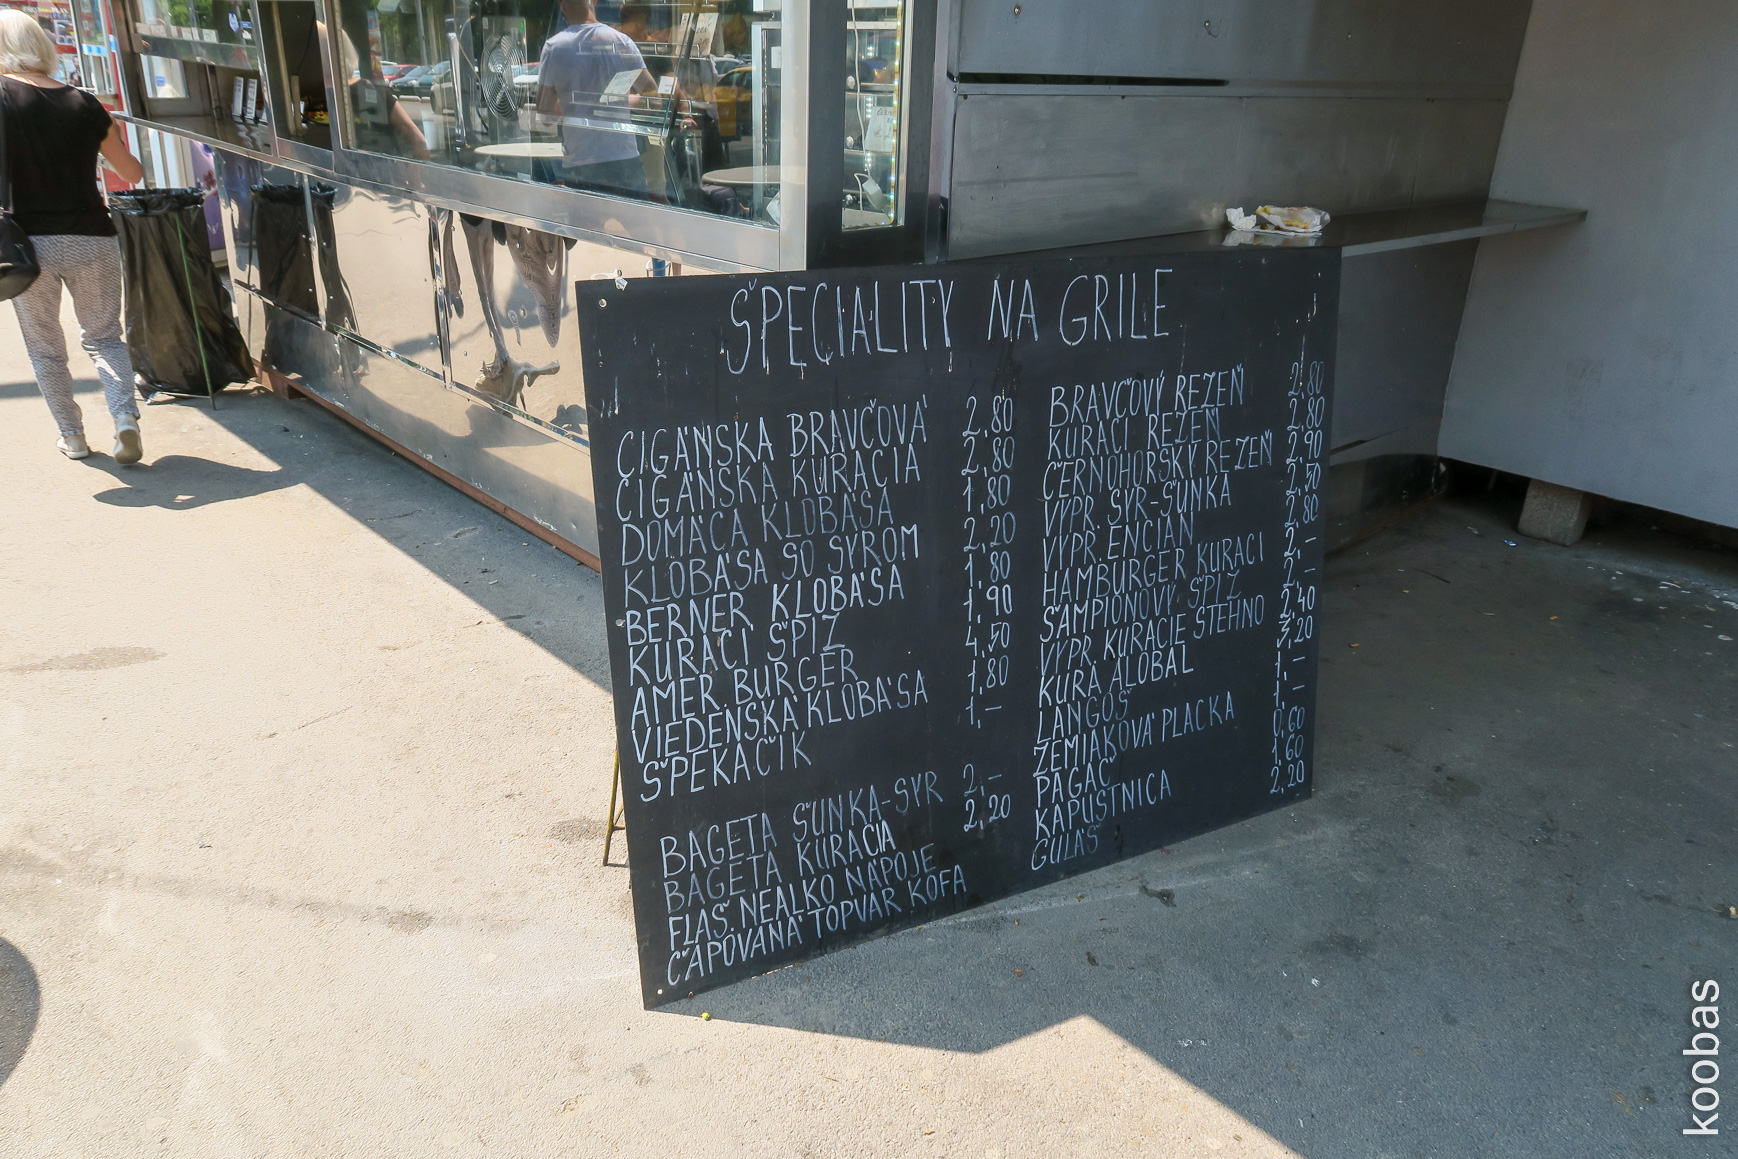 ŠPECIALITY NA GRILE
CIGÁNSKA BRAVČOVÁ 2,80
CIGÁNSKA KURACIA 2,80
DOMÁCA KLOBÁSA 1,80
KLOBÁSA SO SYROM 2,20
BERNER KLOBÁSA 1,80
KURACI ŠPIZ 1,90
AMER. BURGER 4,50
VIEDENSKÁ KLOBÁSA 1,80
ŠPEKÁČIK 1,-
BAGETA ŠUNKA-SYR 2,-
BAGETA KURACIA 2,20
FLAŠ. NEALKO NÁPOJE
ČAPOVANÁ TOPVAR KOFA
BRAVČOVÝ REZEŇ 2,80
KURACÍ REZEŇ 2,80
ČERNOHORSKÝ REZEŇ 2,90
VYPR. SYR-ŠUNKA 2,50
VYPR. ENCIÁN 2,80
HAMBURGER KURACÍ 2,-
ŠAMPIÓNOVÝ ŠPIZ 2,-
VYPR. KURACIE STEHNO 2,40
KURA ALOBAL 3,20
LANGOŠ 1,-
ZEMIAKOVÁ PLACKA 1,-
PAGÁČ 0,60
KAPUSTNICA 1,60
GULÁŠ 2,20
koobas